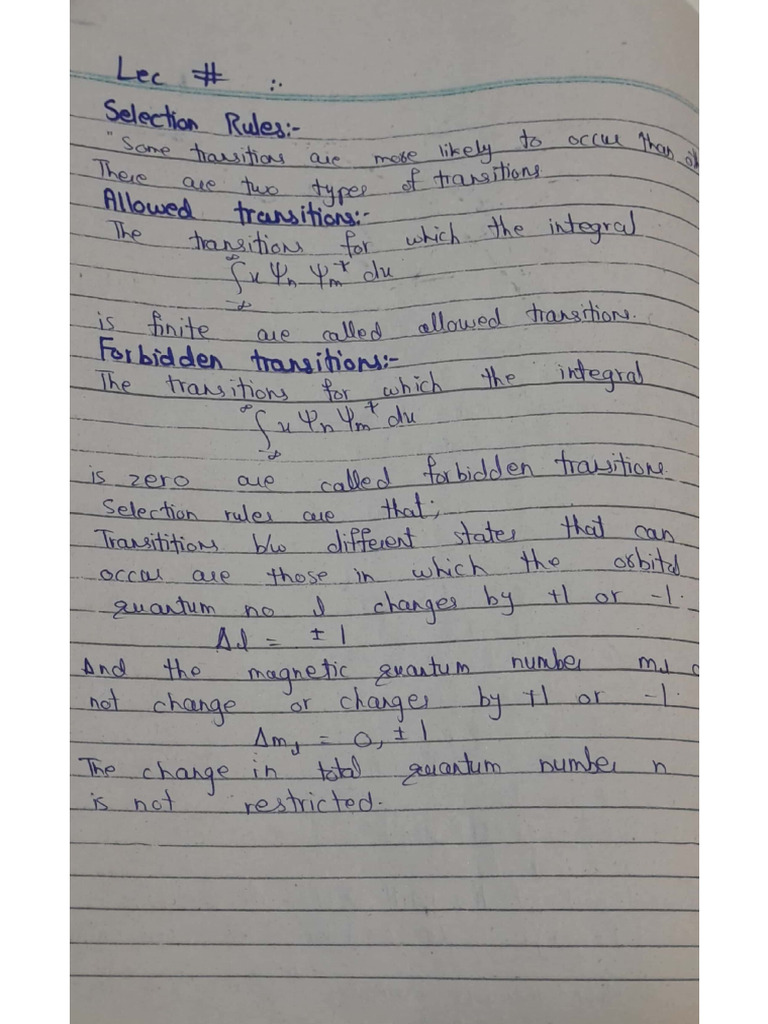 Lec # :-
Selection Rules:-
"Some transitions are more likely to occur than
There are two types of transitions
Allowed transitions:-
The transitions for which the integral
∫ x Ψn Ψm* dx
∞
-∞
is finite are called allowed transitions.
Forbidden transitions:-
The transitions for which the integral
∫ x Ψn Ψm* dx
∞
-∞
is zero are called forbidden transitions.
Selection rules are that;
Transititions b/w different states that can
occur are those in which the orbital
quantum no l changes by +1 or -1.
Δl = ±1
And the magnetic quantum number ml
not change or changes by +1 or -1.
Δml = 0, ±1
The change in total quantum number n
is not restricted.